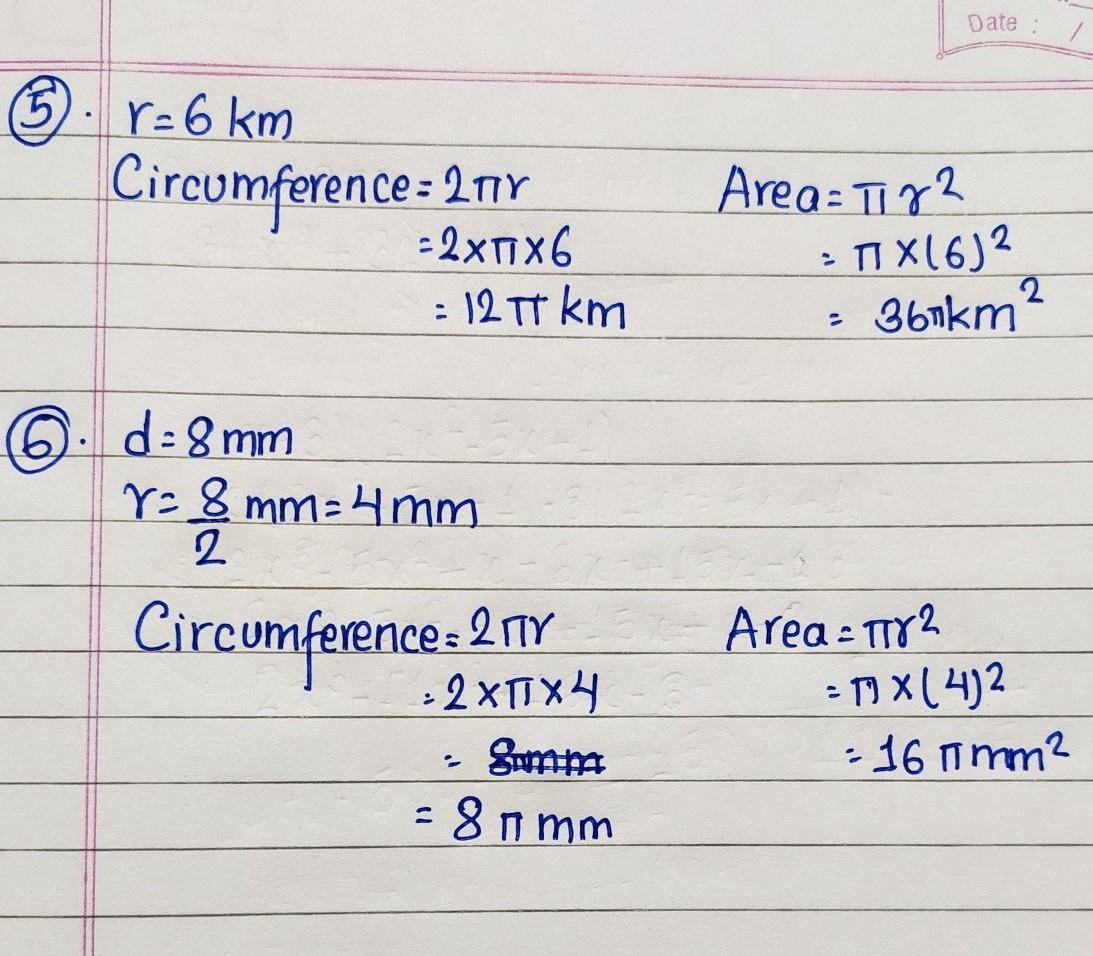 Date : /
⑤. r=6 km
Circumference=2πr
=2×π×6
=12π km
Area=πr²
=π×(6)²
=36πkm²
⑥. d=8mm
r=8/2 mm=4mm
Circumference=2πr
=2×π×4
=
=8π mm
Area=πr²
=π×(4)²
=16πmm²